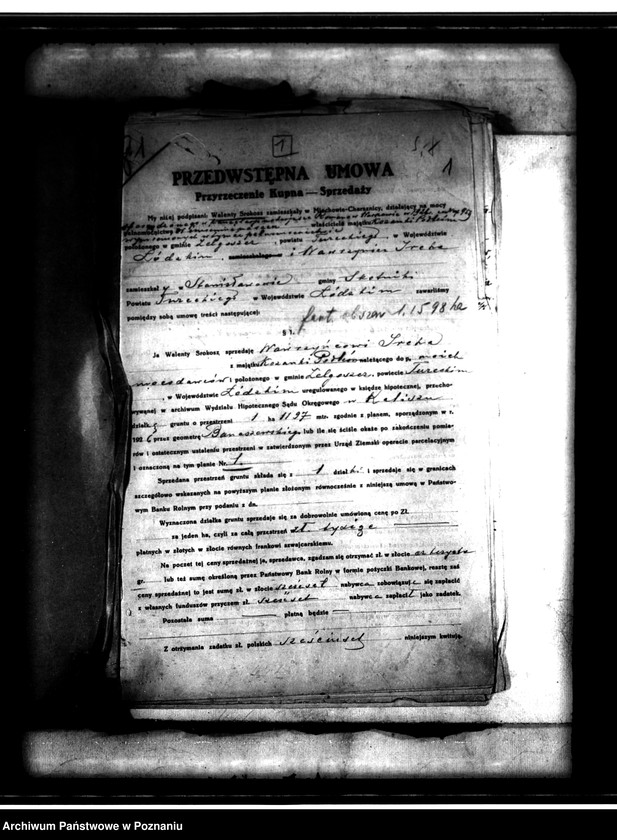 1
1
PRZEDWSTĘPNA UMOWA
Przyrzeczenie Kupna — Sprzedaży
My niżej podpisani: Walenty Srokosz zamieszkały w Miechowie-Charsznicy, działający na mocy
właściciele majątku
położonego w gminie Zelgoszcz, powiatu Tureckiego, w Województwie
Łódzkim, i Wawrzyniec Treba
zamieszkały w Stanisławowie gminy Skotniki
Powiatu Tureckiego w Województwie Łódzkim zawarliśmy
pomiędzy sobą umowę treści następującej:
1.1598 ha
§ 1.
Ja Walenty Srokosz sprzedaję Wawrzyńcowi Treba
z majątku należącego do p. moich
mocodawców i położonego w gminie Zelgoszcz, powiecie Tureckim
, w Województwie Łódzkim uregulowanego w księdze hipotecznej, przecho-
wywanej w archiwum Wydziału Hipotecznego Sądu Okręgowego w Kaliszu
działkę gruntu o przestrzeni 1 ha 1127 mtr. zgodnie z planem, sporządzonym w r.
192 przez geometrę lub ile się ściśle okaże po zakończeniu pomia-
rów i ostatecznym ustaleniu przestrzeni w zatwierdzonym przez Urząd Ziemski operacie parcelacyjnym
i oznaczoną na tym planie Nr. 1.
Sprzedana przestrzeń gruntu składa się z 1 działki i sprzedaje się w granicach
szczegółowo wskazanych na powyższym planie złożonym równocześnie z niniejszą umową w Państwo-
wym Banku Rolnym przy podaniu z dn.
Wyznaczona działka gruntu sprzedaje się za dobrowolnie umówioną cenę po Zł.
za jeden ha, czyli za całą przestrzeń zł. tysiące
płatnych w złotych w złocie równych frankowi szwajcarskiemu.
Na poczet tej ceny sprzedażnej ja, sprzedawca, zgadzam się otrzymać zł. w złocie
gr. lub też sumę określoną przez Państwowy Bank Rolny w formie pożyczki Bankowej, resztę zaś
ceny sprzedażnej to jest sumę zł. w złocie sześćset nabywca zobowiązuje się zapłacić
z własnych funduszów przyczem zł. sześćset nabywca zapłacił jako zadatek.
Pozostała suma płatną będzie
Z otrzymania zadatku zł. polskich sześćset niniejszym kwituję.
Archiwum Państwowe w Poznaniu